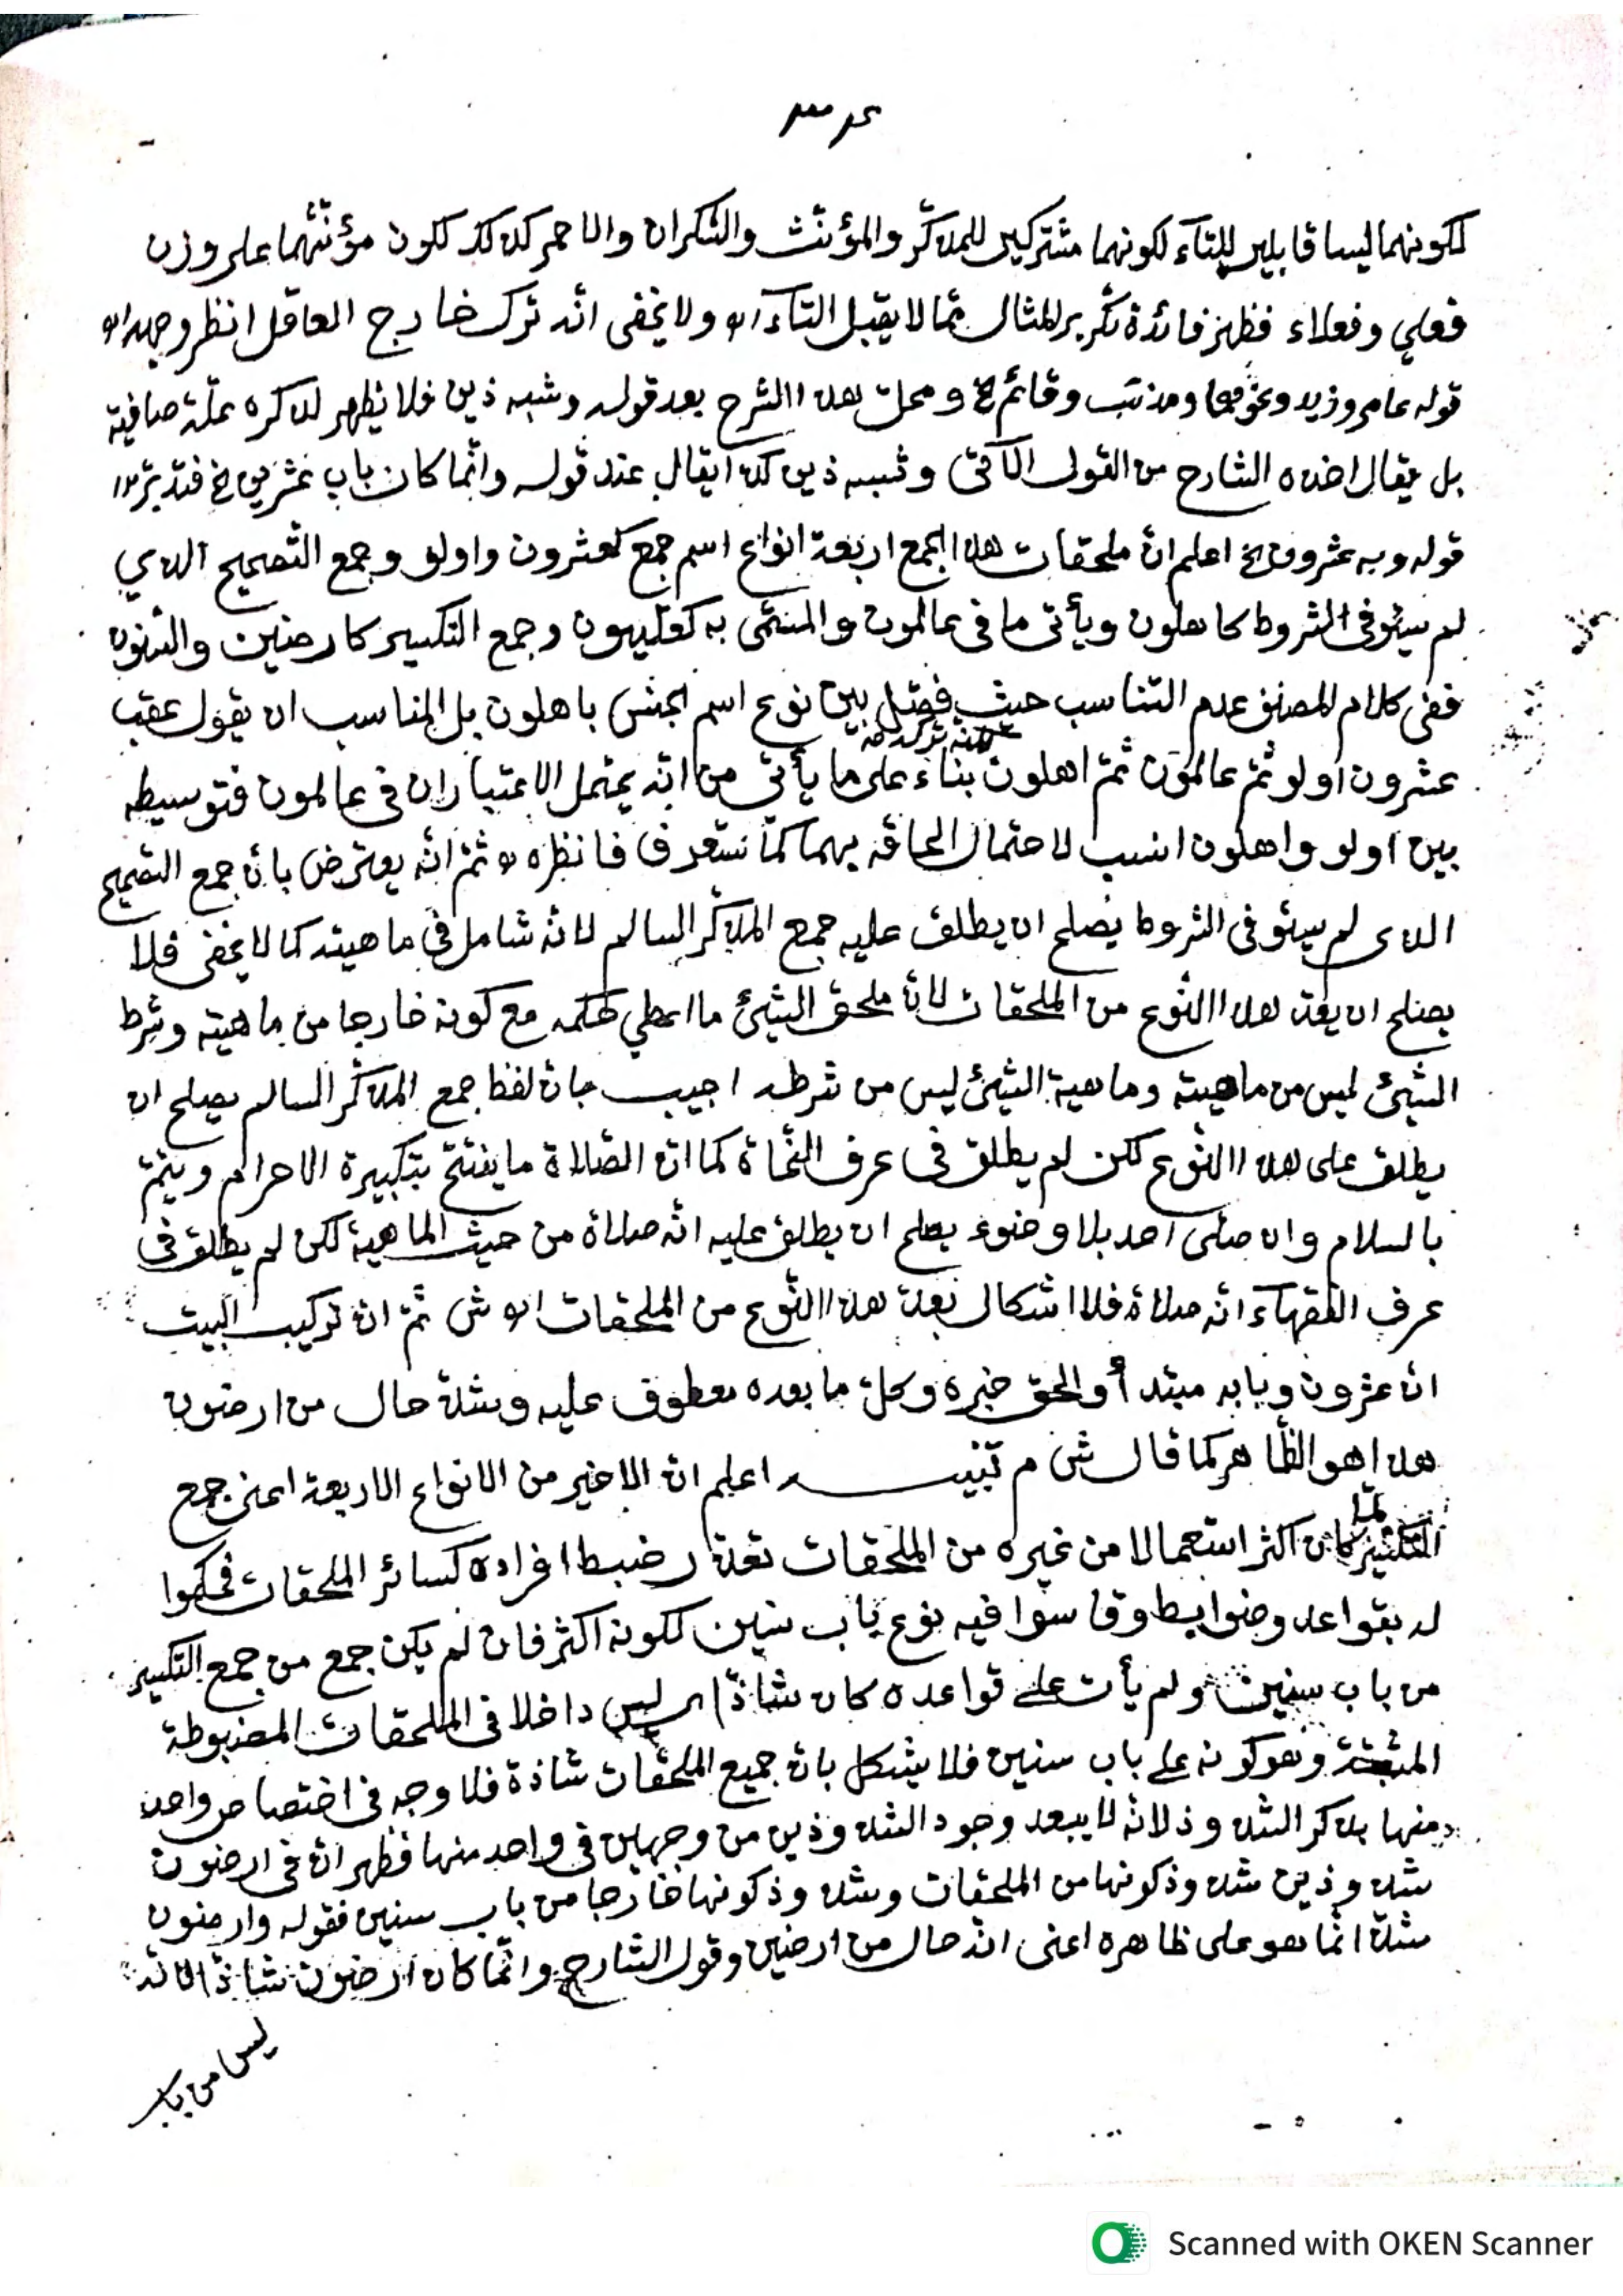 لكونهما ليسا قابلين للتآء لكونهما مشتركين للمذكّر والمؤنّث والسّكران والاحمر كذلك لكون مؤنّثهما على وزن
فعلى وفعلاء فظهر فائدة تكرير المثال ممّا لا يقبل التآء اه ولا يخفى انّه ترك خارج العاقل انظر وجهه اه
قوله عامر وزيد ونحوهما ومذنب وقائم الخ ومحلّ هذا الشرح بعد قوله وشبه ذين فلا يظهر لذكره علّة صافية
بل يقال اخذه الشارح من القول الآتى وشبه ذين كذا يقال عند قوله وانّما كان باب عشرين الخ فتدبّر اه
قوله وبه عشرون الخ اعلم انّ ملحقات هذا الجمع اربعة انواع اسم جمع كعشرون واولو وجمع التّصحيح الذي
لم يستوفى الشروط كاهلون ويأتى ما فى عالمون والمسمّى به كعلّيون وجمع التكسير كارضين والسّنون
ففى كلام المصنف عدم التناسب حيث فصّل بين نوع اسم الجنس باهلون بل المناسب ان يقول عقب
عشرون اولو ثمّ عالمون ثمّ اهلون بناء على ما يأتي من انّه يحتمل الاعتباران فى عالمون فتوسيطه
بين اولو واهلون انسب لاحتمال الحاقه بهما كما ستعرف فانظره اه ثمّ انّه يعترض بانّ جمع التصحيح
الذى لم يستوفى الشروط يصلح ان يطلق عليه جمع المذكّر السالم لانّه شامل فى ماهيته كما لا يخفى فلا
يصلح ان يعدّ هذا النّوع من الملحقات لانّ ملحق الشيئ ما اعطي حكمه مع كونه خارجا من ماهيته وشرط
الشيئ ليس من ماهيته وماهية الشيئ ليس من شرطه اجيب بانّ لفظ جمع المذكّر السالم يصلح ان
يطلق على هذا النّوع لكن لم يطلق فى عرف النّحاة كما انّ الصّلاة ما يفتتح بتكبيرة الاحرام ويختم
بالسلام وان صلّى احد بلا وضوء يصلح ان يطلق عليه انّه صلاة من حيث الماهية لكن لم يطلق فى
عرف الفقهآء انّه صلاة فلا اشكال بعدّ هذا النّوع من الملحقات اه ش ثمّ انّ تركيب البيت
انّ عشرون وبابه مبتدأ والحق خبره وكلّ ما بعده معطوف عليه وشذّ حال من ارضون
هذا هو الظّاهر كما قال ش م تنبيه اعلم انّ الاخير من الانواع الاربعة اعنى جمع
التكسير لمّا كان اكثر استعمالا من غيره من الملحقات تعذّر ضبط افراده كسائر الملحقات فحكموا
له بقواعد وضوابط وقاسوا فيه نوع باب سنين لكونه اكثر فان لم يكن جمع من جمع التكسير
من باب سنين ولم يأت على قواعده كان شاذّا اى ليس داخلا فى الملحقات المضبوطة
وهو كونه على باب سنين فلا يشكل بانّ جميع الملحقات شاذة فلا وجه فى اختصاص واحد
منها بذكر الشذوذ لانّه لا يبعد وجود الشذوذين من وجهين فى واحد منها فظهر انّ فى ارضون
شذوذين شذوذ كونها من الملحقات وشذوذ كونها خارجا من باب سنين فقوله وارضون
شذّ انّما هو على ظاهره اعنى انّه حال من ارضين وقول الشارح وانّما كان ارضون شاذّا لانّه
ليس من باب
Scanned with OKEN Scanner